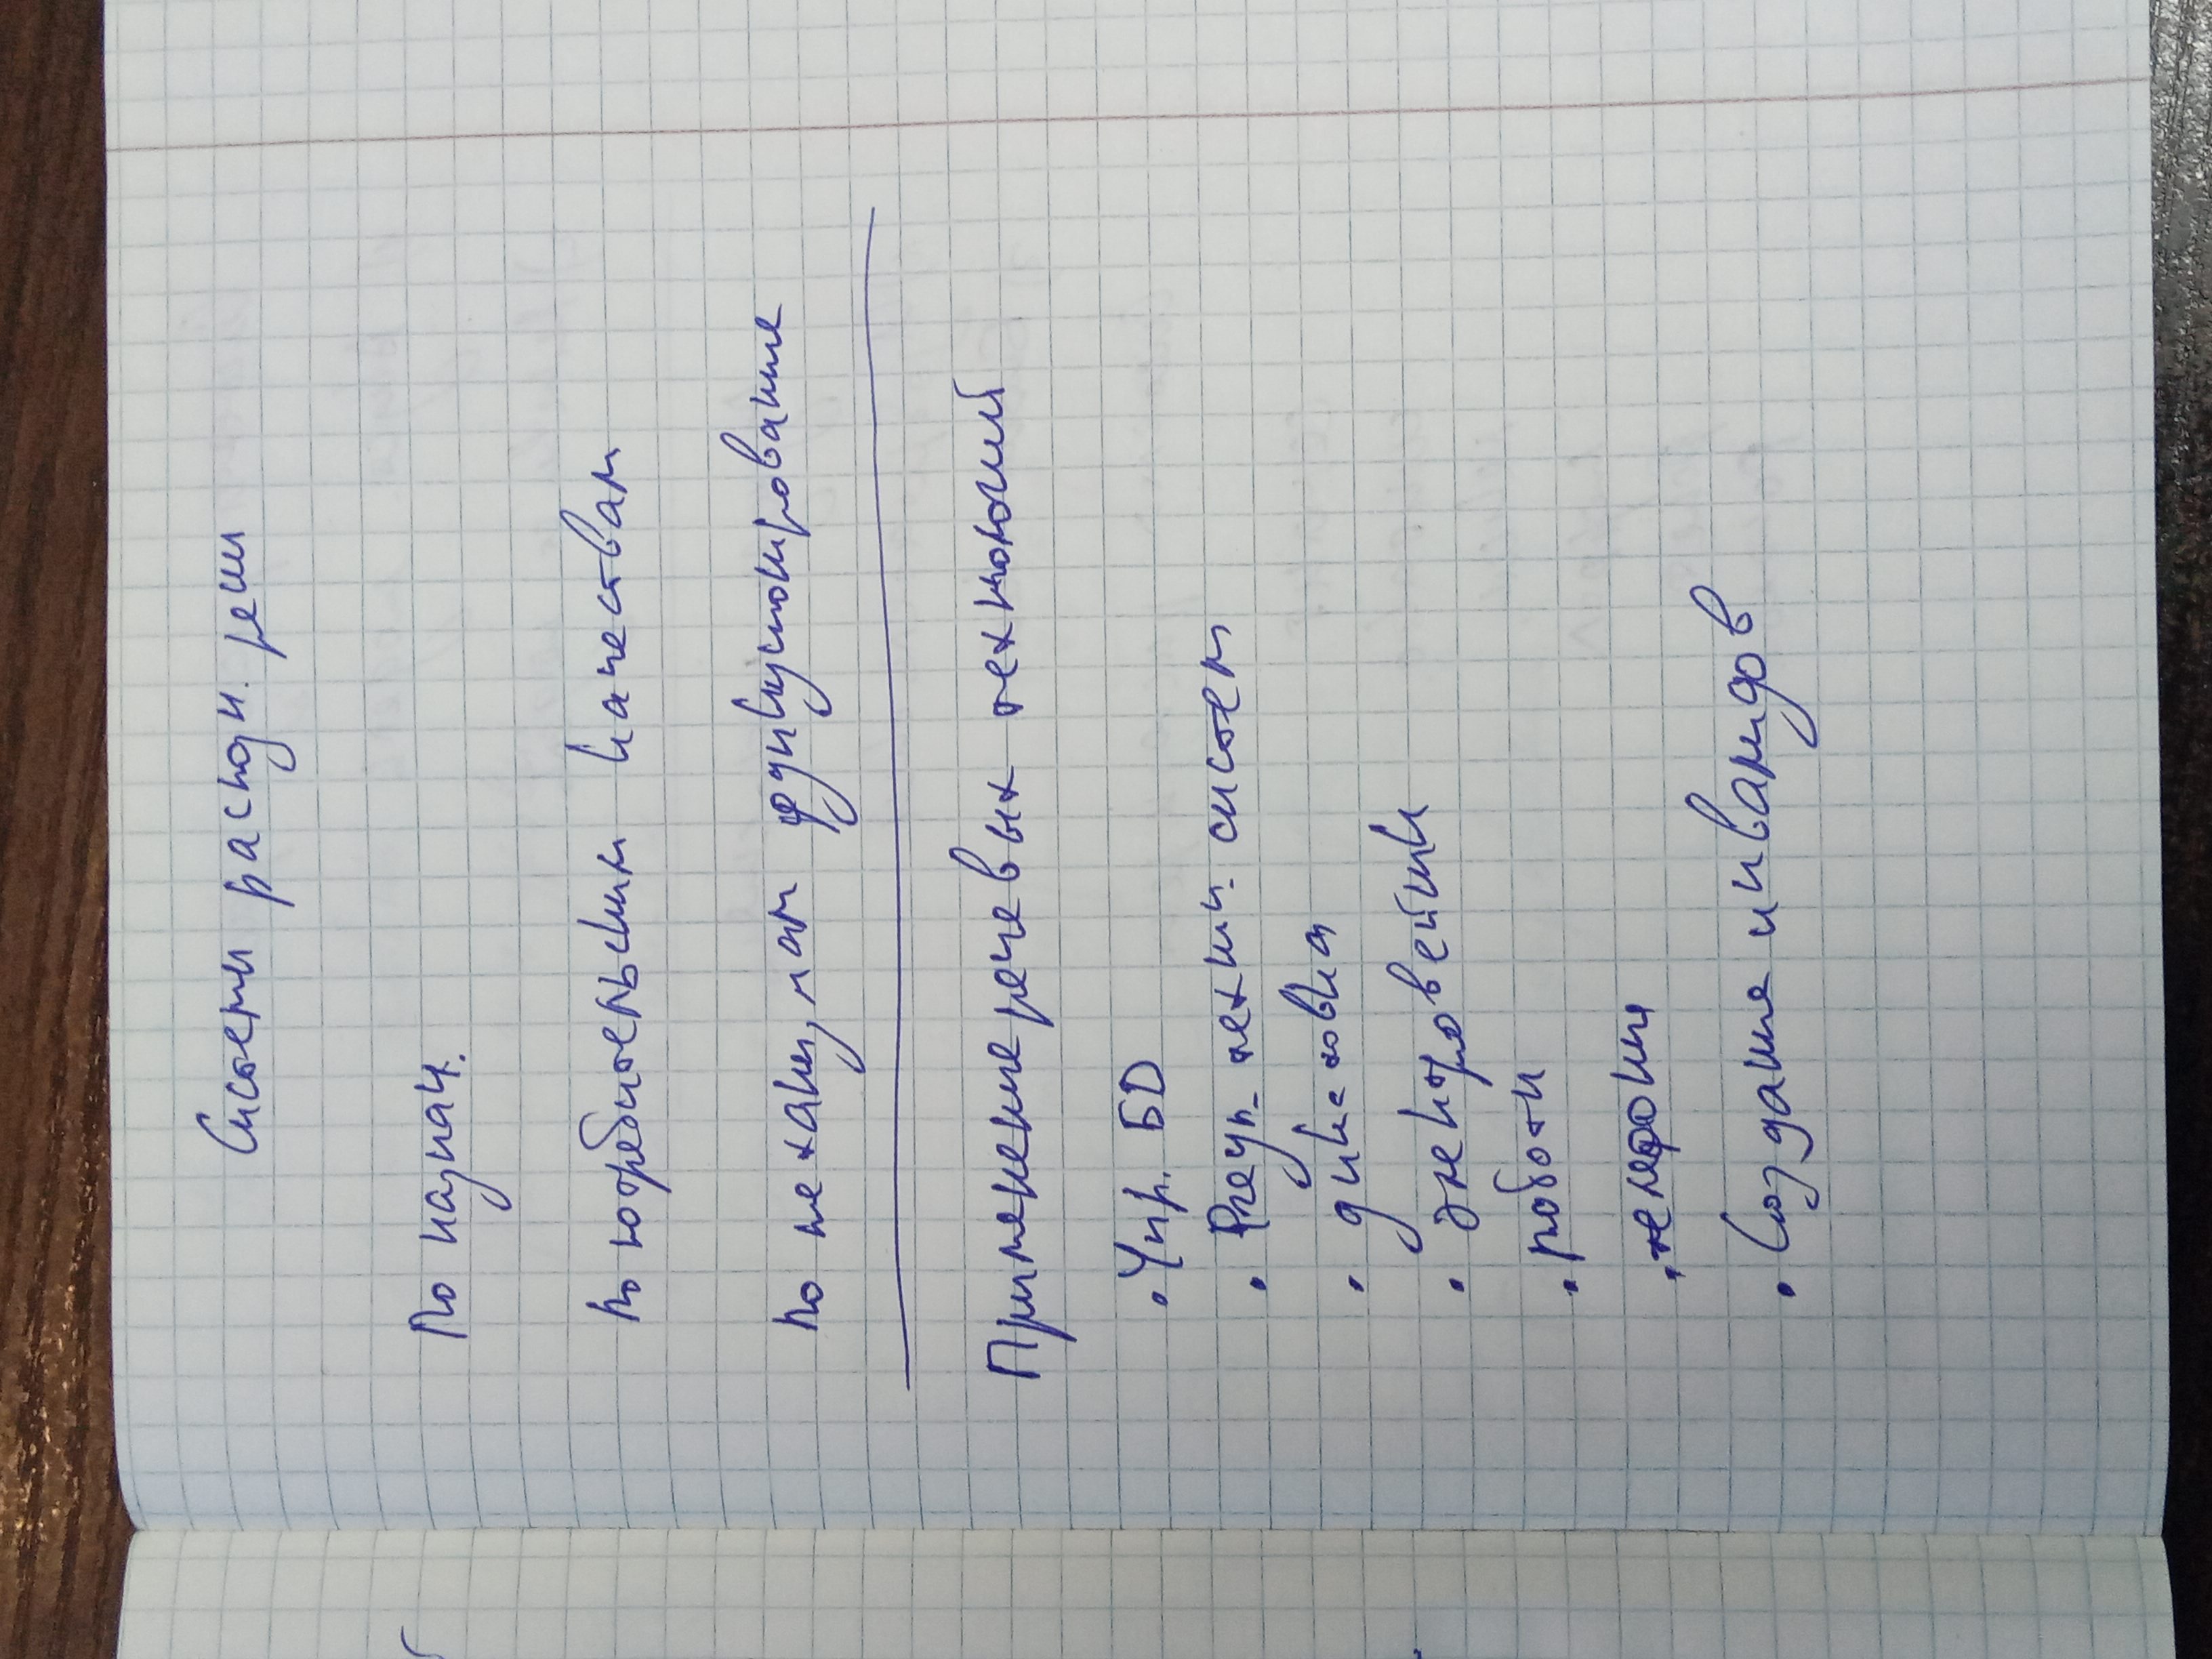 Системы распозн. речи
По назнач.
По потребительским качествам
По механизмам функционирование
Применение речевых технологий
• Упр. БД
• техни. систем
• диктовка
• электровейник
• роботы
• телефония
• Создание инвалидов